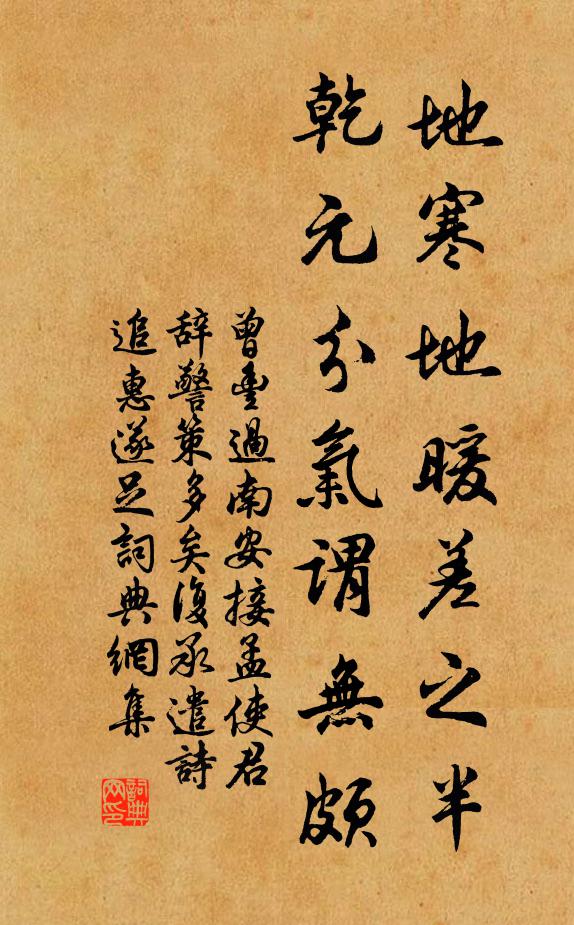 地寒地暖差之半
乾元分氣謂無頗
曾豊過南安接孟使君
辞警策多矣復承遣詩
追惠遂足詞典網集
詞典
网印